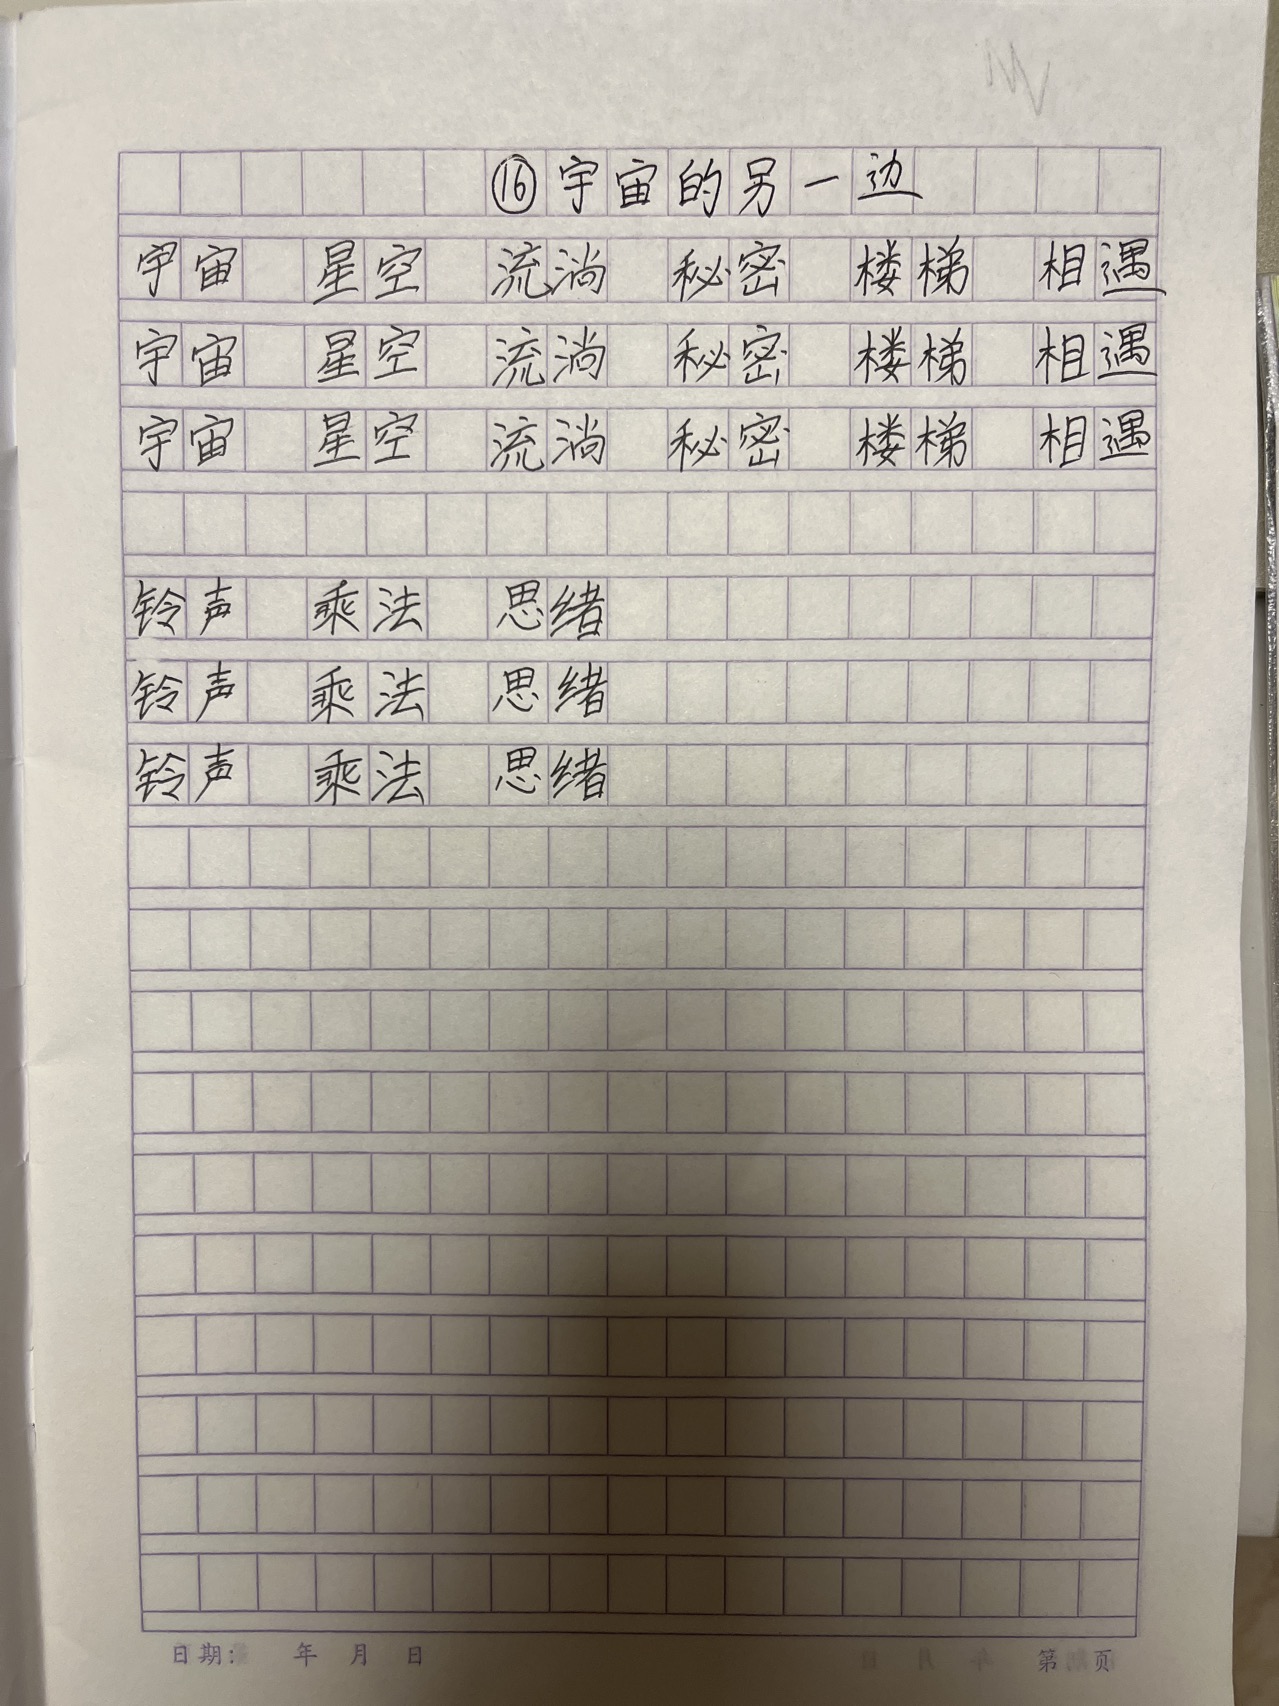 ⑯宇宙的另一边
宇宙 星空 流淌 秘密 楼梯 相遇
宇宙 星空 流淌 秘密 楼梯 相遇
宇宙 星空 流淌 秘密 楼梯 相遇
铃声 乘法 思绪
铃声 乘法 思绪
铃声 乘法 思绪
日期： 年 月 日 第 页